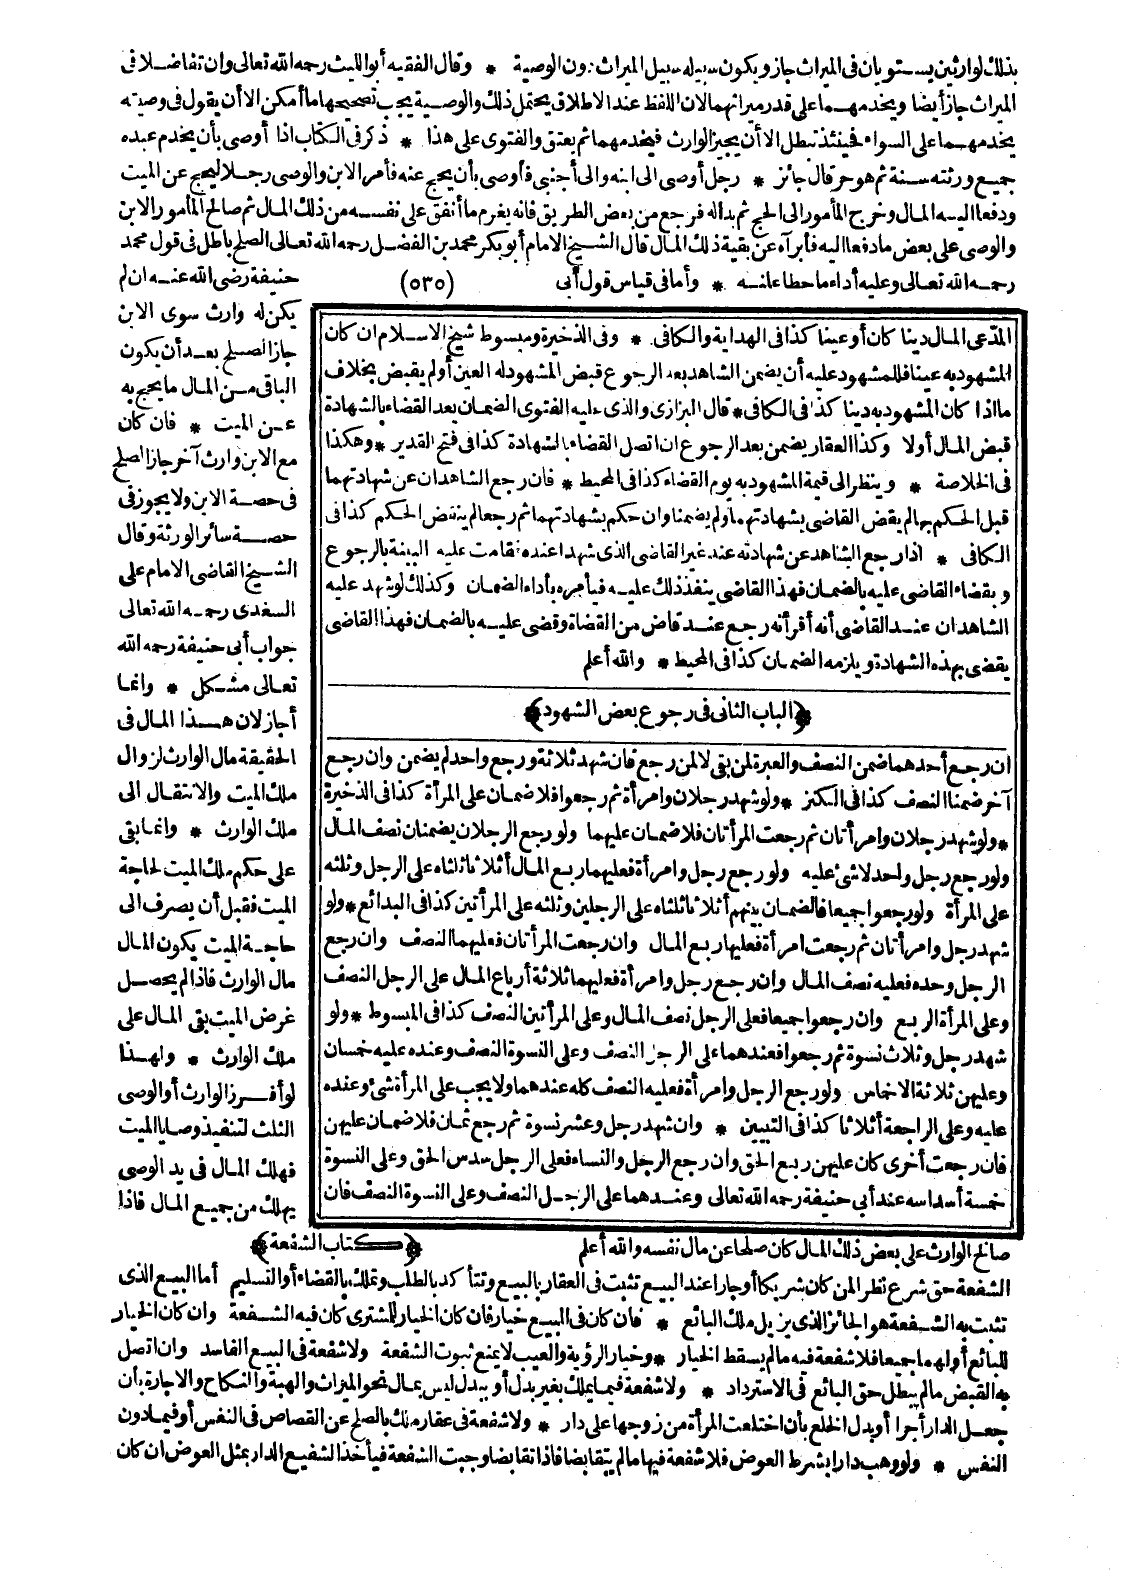 بذلك لوارثين يستويان في الميراث جاز ويكون سبيله سبيل الميراث دون الوصية * وقال الفقيه أبو الليث رحمه الله تعالى وان تفاضلا في
الميراث جاز أيضا ويخدمهما على قدر ميراثهما لان اللفظ عند الاطلاق يحتمل ذلك والوصية يجب تصحيحها ما أمكن الا أن يقول في وصيته
يخدمهما على السواء فحينئذ تبطل الا أن يجيز الوارث فيخدمهما ثم يعتق والفتوى على هذا * ذكر في الكتاب اذا أوصى بأن يخدم عبده
جميع ورثته سنة ثم هو حر قال جائز * رجل أوصى الى ابنه والى أجنبي فأوصى بأن يحج عنه فأمر الابن والوصي رجلا ليحج عن الميت
ودفعا اليه المال وخرج المأمور الى الحج ثم بدا له فرجع من بعض الطريق فانه يغرم ما أنفق على نفسه من ذلك المال ثم صالح المأمور الابن
والوصي على بعض ما دفعا اليه فأبرآه عن بقية ذلك المال قال الشيخ الامام أبو بكر محمد بن الفضل رحمه الله تعالى الصلح باطل في قول محمد
رحمه الله تعالى وعليه أداء ما حطا عنه * وأما في قياس قول أبي
(٥٣٥)
حنيفة رضي الله عنه ان لم
يكن له وارث سوى الابن
جاز الصلح بعد أن يكون
الباقي من المال ما يحج به
عن الميت * فان كان
مع الابن وارث آخر جاز الصلح
في حصة الابن ولا يجوز في
حصة سائر الورثة وقال
الشيخ القاضي الامام على
السغدى رحمه الله تعالى
جواب أبي حنيفة رحمه الله
تعالى مشكل * وانما
أجاز لان هذا المال في
الحقيقة مال الوارث لزوال
ملك الميت والانتقال الى
ملك الوارث * وانما بقى
على حكم ملك الميت لحاجة
الميت فقبل أن يصرف الى
حاجة الميت يكون المال
مال الوارث فاذا لم يحصل
غرض الميت بقى المال على
ملك الوارث * ولهذا
لو أفرز الوارث أو الوصي
الثلث لتنفيذ وصايا الميت
فهلك المال في يد الوصي
يهلك من جميع المال فاذا
صالح الوارث على بعض ذلك المال كان صلحا عن مال نفسه والله أعلم
﴿كتاب الشفعة﴾
الشفعة حق شرع نظرا لمن كان شريكا أو جارا عند البيع تثبت في العقار بالبيع وتتأكد بالطلب وتملك بالقضاء أو التسليم أما البيع الذي
تثبت به الشفعة هو الجائز الذي يزيل ملك البائع * فان كان في البيع خيار فان كان الخيار للمشترى كان فيه الشفعة وان كان الخيار
للبائع أو لهما جميعا فلا شفعة فيه ما لم يسقط الخيار * وخيار الرؤية والعيب لا يمنع ثبوت الشفعة ولا شفعة في البيع الفاسد وان اتصل
به القبض ما لم يبطل حق البائع في الاسترداد * ولا شفعة فيما يملك بغير بدل أو ببدل ليس بمال نحو الميراث والهبة والنكاح والاجارة بأن
جعل الدار أجرا أو بدل الخلع بأن اختلعت المرأة من زوجها على دار * ولا شفعة في عقار ملك بالصلح عن القصاص في النفس أو فيما دون
النفس * ولو وهب دارا بشرط العوض فلا شفعة فيها ما لم يتقابضا فاذا تقابضا وجبت الشفعة فيأخذ الشفيع الدار بمثل العوض ان كان
المدّعى المال دينا كان أو عينا كذا في الهداية والكافي * وفي الذخيرة ومبسوط شيخ الاسلام ان كان
المشهود به عينا فللمشهود عليه أن يضمن الشاهد بعد الرجوع قبض المشهود له العين أو لم يقبض بخلاف
ما اذا كان المشهود به دينا كذا في الكافي * قال البزازى والذي عليه الفتوى الضمان بعد القضاء بالشهادة
قبض المال أو لا وكذا العقار يضمن بعد الرجوع ان اتصل القضاء بالشهادة كذا في فتح القدير * وهكذا
في الخلاصة * وينظر الى قيمة المشهود به يوم القضاء كذا في المحيط * فان رجع الشاهدان عن شهادتهما
قبل الحكم بها لم يقض القاضي بشهادتهما ولم يضمنا وان حكم بشهادتهما ثم رجعا لم ينتقض الحكم كذا في
الكافي * اذا رجع الشاهد عن شهادته عند غير القاضي الذي شهدا عنده فقامت عليه البينة بالرجوع
وبقضاء القاضي عليه بالضمان فهذا القاضي ينفذ ذلك عليه فيأمره بأداء الضمان وكذلك لو شهد عليه
الشاهدان عند القاضي أنه أقر أنه رجع عند قاض من القضاة وقضى عليه بالضمان فهذا القاضي
يقضى بهذه الشهادة ويلزمه الضمان كذا في المحيط * والله أعلم
﴿الباب الثاني في رجوع بعض الشهود﴾
ان رجع أحدهما ضمن النصف والعبرة لمن بقى لا لمن رجع فان شهد ثلاثة ورجع واحد لم يضمن وان رجع
آخر ضمنا النصف كذا في الكنز * ولو شهد رجلان وامرأة ثم رجعوا فلا ضمان على المرأة كذا في الذخيرة
* ولو شهد رجلان وامرأتان ثم رجعت المرأتان فلا ضمان عليهما ولو رجع الرجلان يضمنان نصف المال
ولو رجع رجل واحد لا شئ عليه ولو رجع رجل وامرأة فعليهما ربع المال أثلاثا ثلثاه على الرجل وثلثه
على المرأة ولو رجعوا جميعا فالضمان بينهم أثلاثا ثلثاه على الرجلين وثلثه على المرأتين كذا في البدائع * ولو
شهد رجل وامرأتان ثم رجعت امرأة فعليها ربع المال وان رجعت المرأتان فعليهما النصف وان رجع
الرجل وحده فعليه نصف المال وان رجع رجل وامرأة فعليهما ثلاثة أرباع المال على الرجل النصف
وعلى المرأة الربع وان رجعوا جميعا فعلى الرجل نصف المال وعلى المرأتين النصف كذا في المبسوط * ولو
شهد رجل وثلاث نسوة ثم رجعوا فعندهما على الرجل النصف وعلى النسوة النصف وعنده عليه خمسان
وعليهن ثلاثة الاخماس ولو رجع الرجل وامرأة فعليه النصف كله عندهما ولا يجب على المرأة شئ وعنده
عليه وعلى الراجعة أثلاثا كذا في التبيين * وان شهد رجل وعشر نسوة ثم رجع ثمان فلا ضمان عليهن
فان رجعت أخرى كان عليهن ربع الحق وان رجع الرجل والنساء فعلى الرجل سدس الحق وعلى النسوة
خمسة أسداسه عند أبي حنيفة رحمه الله تعالى وعندهما على الرجل النصف وعلى النسوة النصف فان